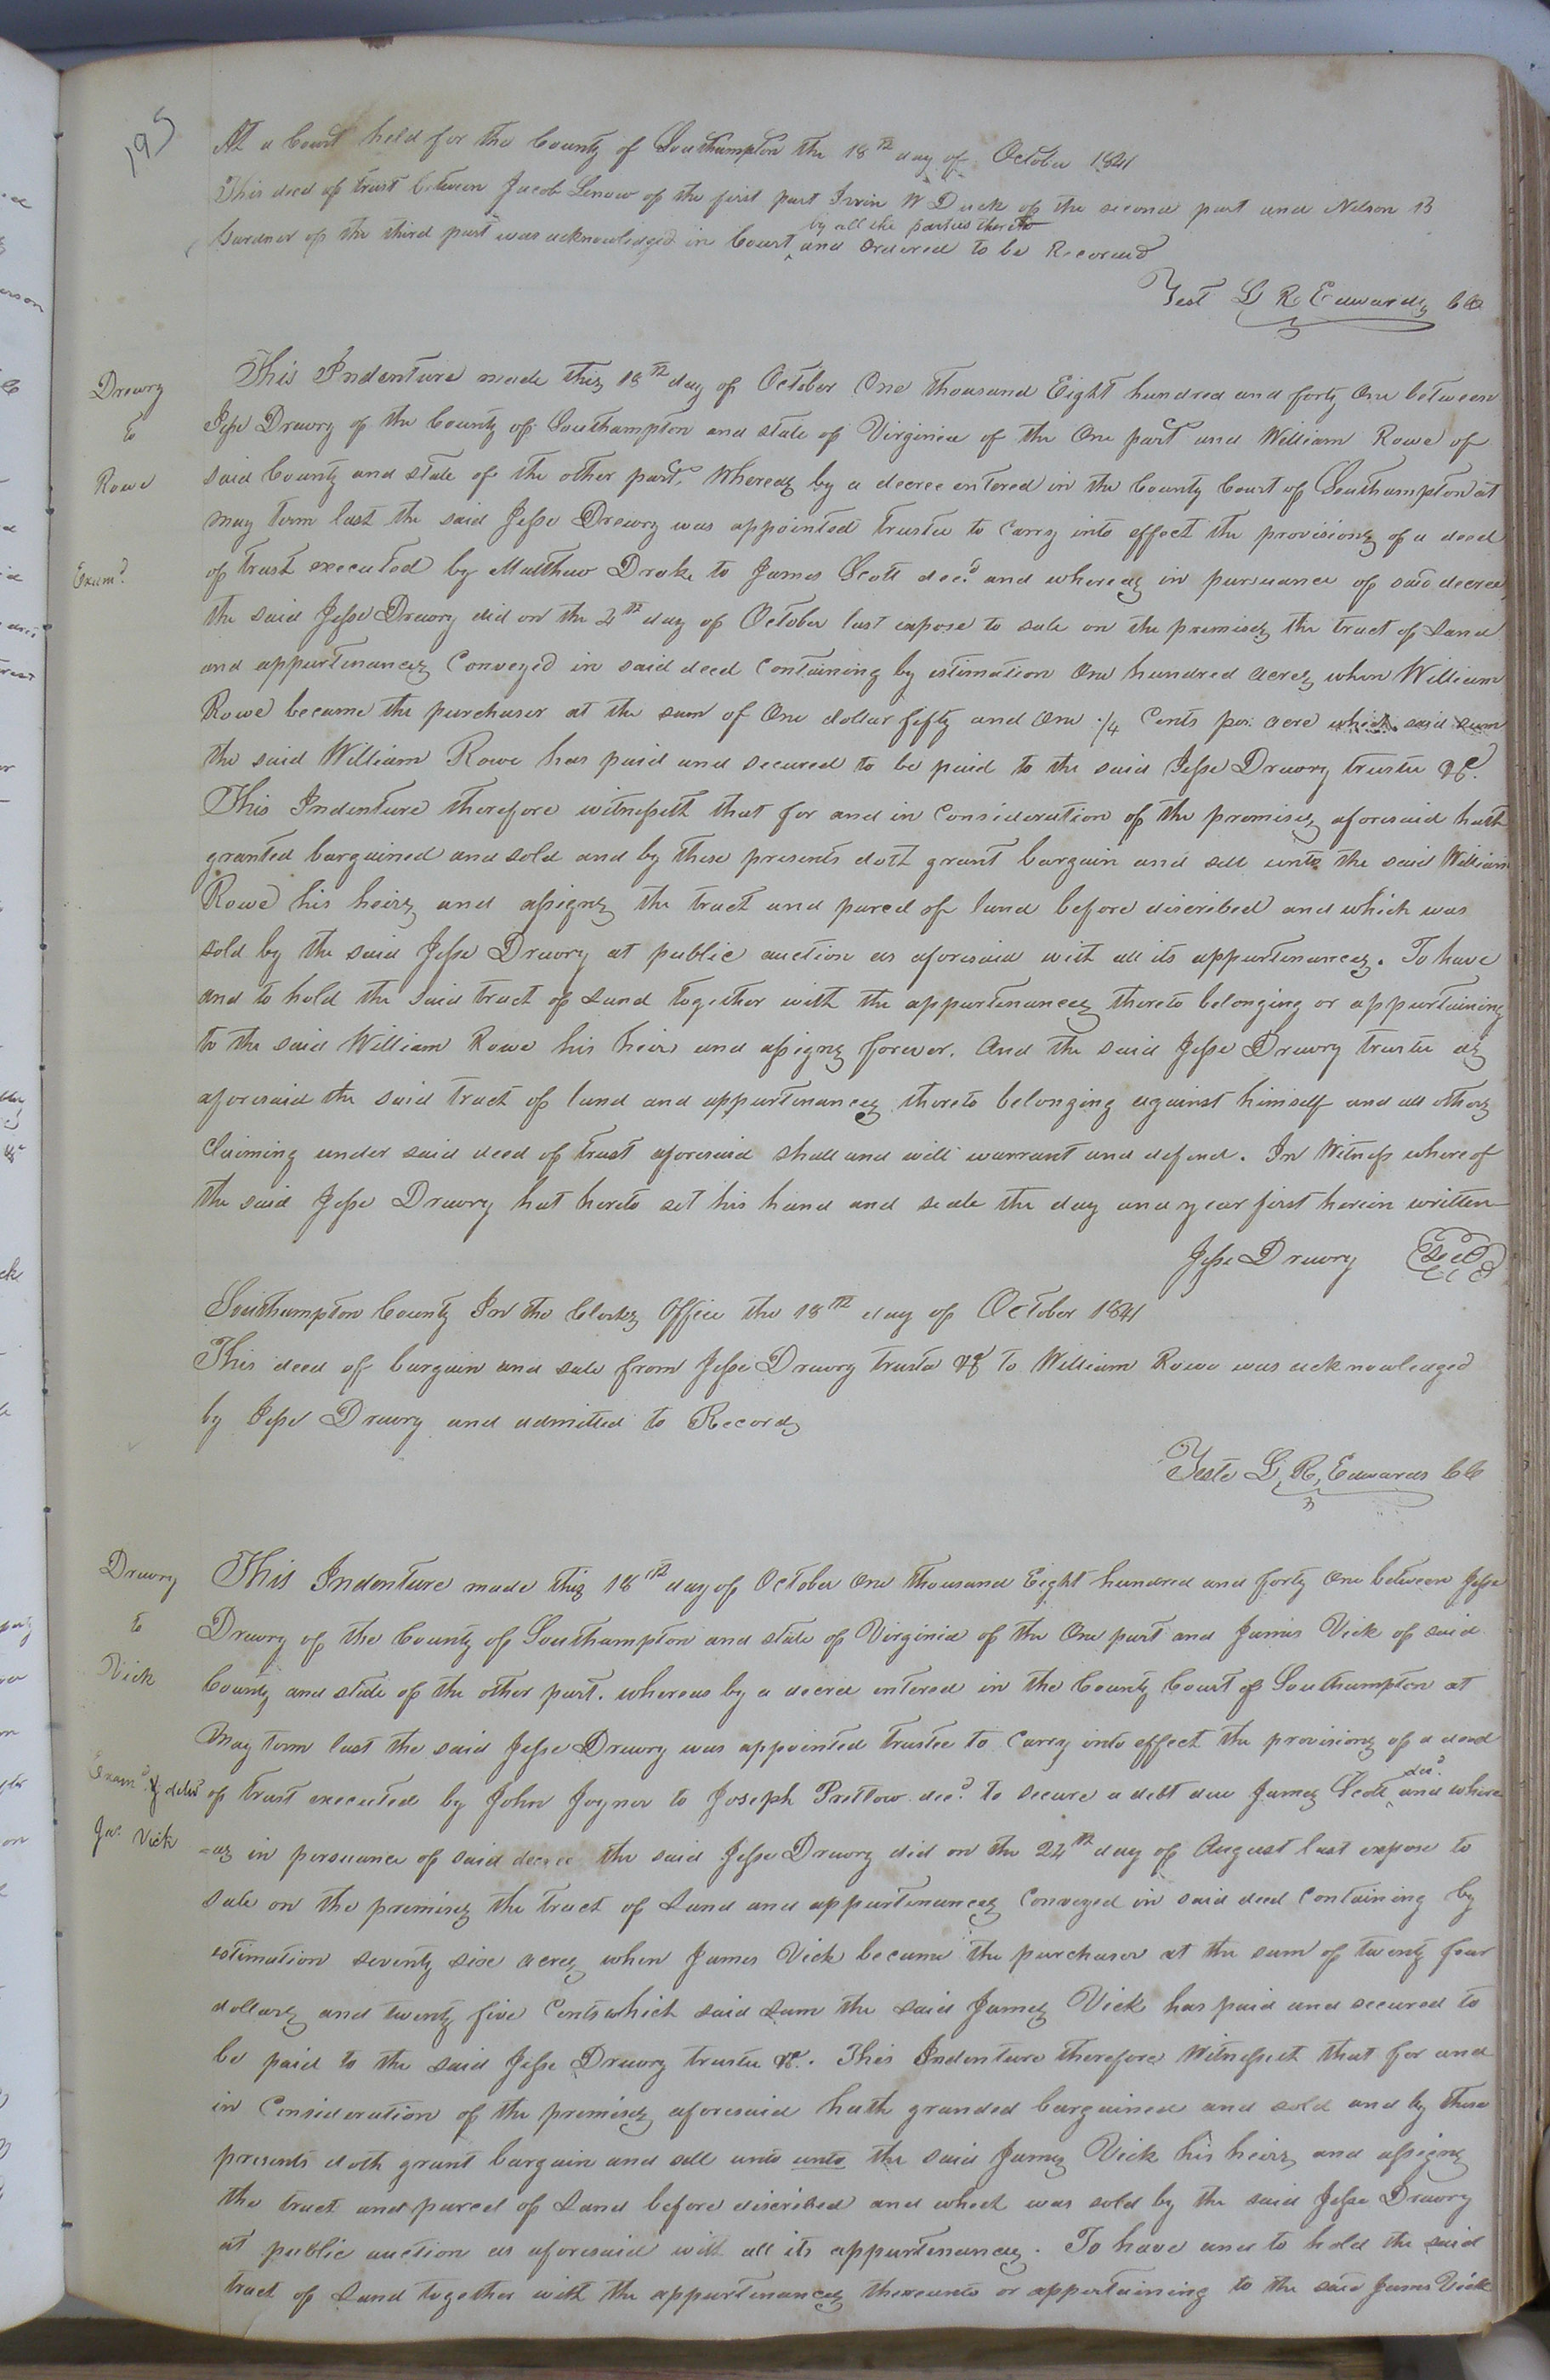 195
At a Court held for the County of Southampton the 18th day of October 1841
This deed of trust between Jacob Lenow of the first part Irvin W Duck of the second part and Nelson B
Gardner of the third part was acknowledged in Court by all the parties thereto and Ordered to be Recorded
Test L R Edwards CC
Drewry
to
Rowe
Exam.d
This Indenture made this 18th day of October One thousand Eight hundred and forty One between
Jesse Drewry of the County of Southampton and state of Virginia of the One part and William Rowe of
said County and state of the other part. Whereas by a decree entered in the County Court of Southampton at
may term last the said Jesse Drewry was appointed trustee to carry into effect the provisions of a deed
of trust executed by Matthew Drake to James Scott dec.d and whereas in pursuance of said decree
the said Jesse Drewry did on the 2th day of October last expose to sale on the premises the tract of Land
and appurtenances Conveyed in said deed Containing by estimation One hundred acres when William
Rowe became the purchaser at the sum of One dollar fifty and One 1/4 Cents per acre which said sum
the said William Rowe has paid and secured to be paid to the said Jesse Drewry trustee &c.
This Indenture therefore witnesseth that for and in Consideration of the premises aforesaid hath
granted bargained and sold and by these presents doth grant bargain and sell unto the said William
Rowe his heirs and assigns the tract and parcel of land before discribed and which was
sold by the said Jesse Drewry at public auction as aforesaid with all its appurtenances. To have
and to hold the said tract of Land together with the appurtenances thereto belonging or appurtaining
to the said William Rowe his heirs and assigns forever. And the said Jesse Drewry trustee as
aforesaid the said tract of land and appurtenances thereto belonging against himself and all others
Claiming under said deed of trust aforesaid shall and will warrant and defend. In Witness whereof
the said Jesse Drewry hat hereto set his hand and seale the day and year first herein written
Jesse Drewry Seal
Southampton County In the Clerks Office the 18th day of October 1841
This deed of bargain and sale from Jesse Drewry trustee &c to William Rowe was acknowledged
by Jesse Drewry and admitted to Record
Teste L. R. Edwards CC
Drewry
to
Vick
Exam.d & deld
Jas. Vick
This Indenture made this 18th day of October One thousand Eight hundred and forty One between Jesse
Drewry of the County of Southampton and state of Virginia of the One part and James Vick of said
County and state of the other part. whereas by a decree entered in the County Court of Southampton at
May term last the said Jesse Drewry was appointed trustee to carry into effect the provisions of a deed
of trust executed by John Joyner to Joseph Pretlow dec.d to secure a debt due James Scott dec.d and where
=as in persuance of said decree the said Jesse Drewry did on the 24th day of August last expose to
sale on the premises the tract of Land and appurtenances Conveyed in said deed Containing by
estimation seventy six acres when James Vick became the purchaser at the sum of twenty four
dollars and twenty five Cents which said sum the said James Vick has paid and secured to
be paid to the said Jesse Drewry trustee &c. This Indenture therefore Witnesseth that for and
in Consideration of the premises aforesaid hath granded bargained and sold and by these
presents doth grant bargain and sell unto unto the said James Vick his heirs and assigns
the tract and parcel of Land before discribed and which was sold by the said Jesse Drewry
at public auction as aforesaid with all its appurtenances. To have and to hold the said
tract of Land together with the appurtenances thereunto or appurtaining to the said James Vick